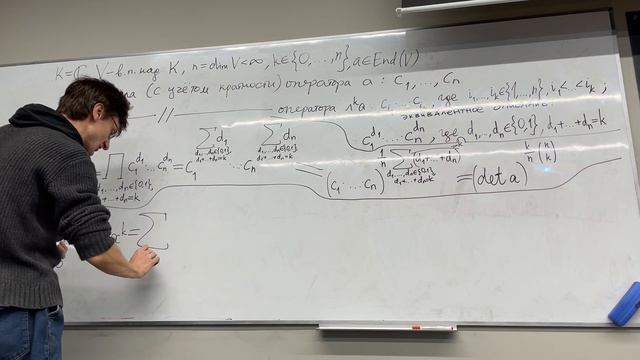 K=ℂ, V – в.п. над K, n=dim V<∞, k∈{0,…,n}, a∈End(V)
(с учётом кратности) оператора a : c₁,…,cₙ
— // — оператора Λᵏa : где i₁,…,iₖ∈{1,…,n}, i₁<…<iₖ ;
эквивалентное описание
c₁^{d₁}…cₙ^{dₙ}, где d₁,…,dₙ∈{0,1}, d₁+…+dₙ=k
∏_{d₁,…,dₙ∈{0,1}, d₁+…+dₙ=k} c₁^{d₁}…cₙ^{dₙ} = c₁^{∑_{d₁,…,dₙ∈{0,1}, d₁+…+dₙ=k} d₁} … cₙ^{∑_{d₁,…,dₙ∈{0,1}, d₁+…+dₙ=k} dₙ} = (c₁·…·cₙ)^{1/n ∑_{d₁,…,dₙ∈{0,1}, d₁+…+dₙ=k} (d₁+…+dₙ)} = (det a)^{k/n (n k)}
k = ∑